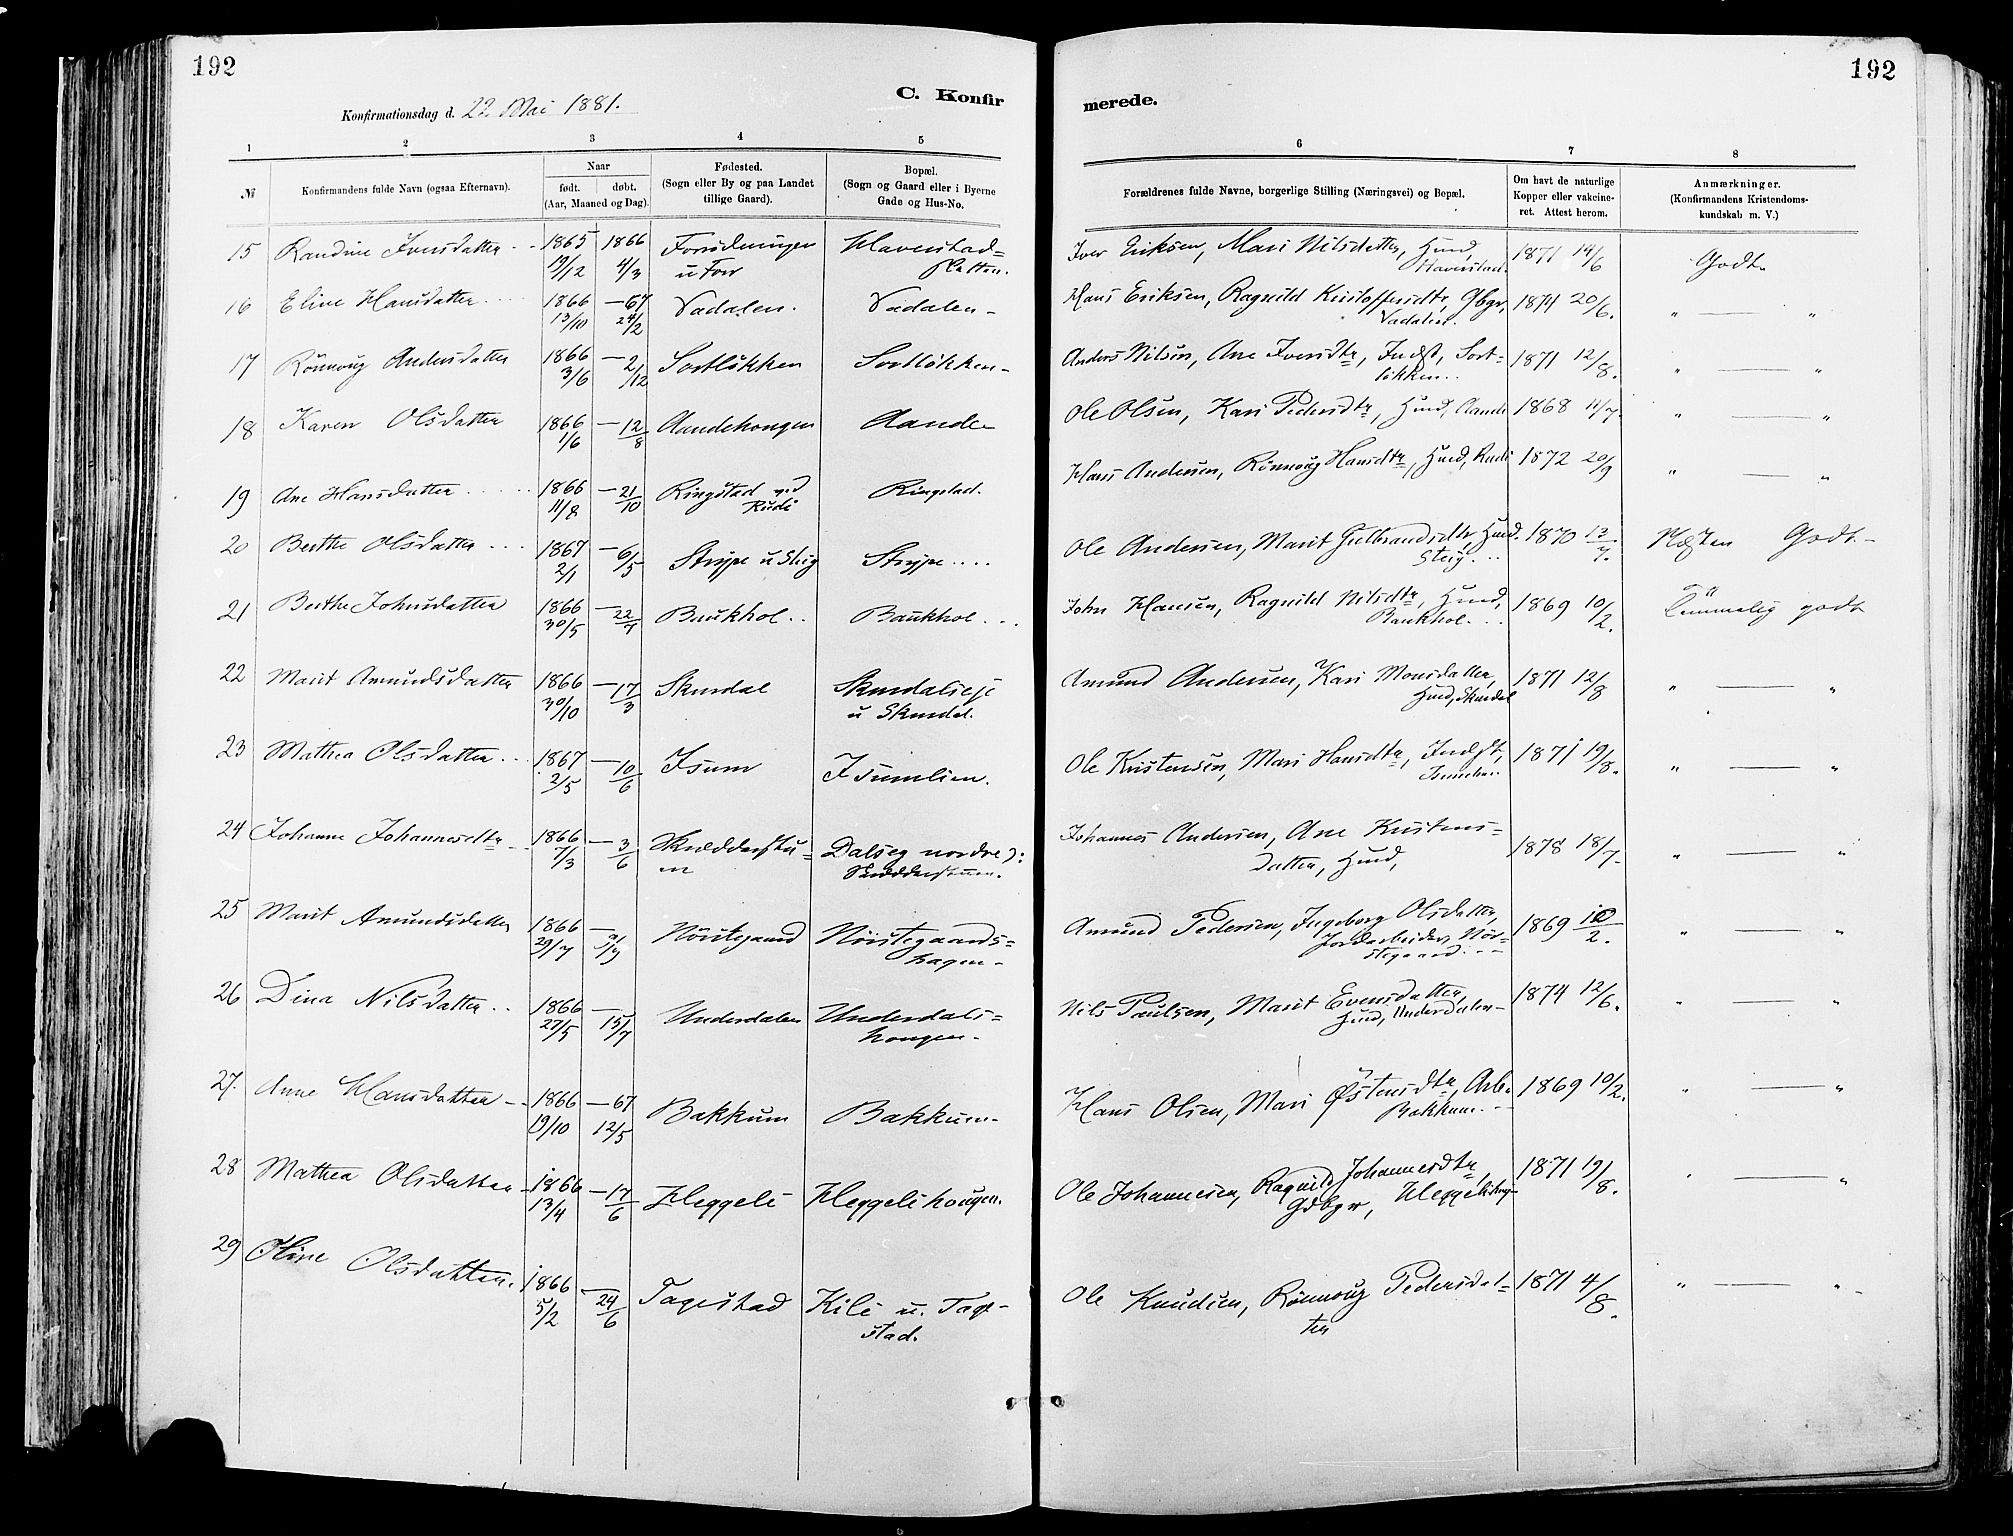 192
192
C. Konfir
merede.
Konfirmationsdag d. 22 Mai 1881.
1 2 3 4 5 6 7 8
№ Konfirmandens fulde Navn (ogsaa Efternavn). Naar født. døbt. (Aar, Maaned og Dag). Fødested. (Sogn eller By og paa Landet tillige Gaard). Bopæl. (Sogn og Gaard eller i Byerne Gade og Hus-No. Forældrenes fulde Navne, borgerlige Stilling (Næringsvei) og Bopæl. Om havt de naturlige Kopper eller vakcineret. Attest herom. Anmærkninger. (Konfirmandens Kristendomskundskab m. V.)
15 Randine Iversdatter 1865 19/12 1866 4/3 u Forr Haverstad= Iver Eriksen, Mari Nilsdatter, Husm, Haverstad. 1871 14/6 Godt.
16 Eline Hansdatter 1866 13/10 — 67 24/2 Vadalen. Vadalen – Hans Eriksen, Ragnild Kristoffersdtr, Gbgr, Vadalen. 1874 20/6. " — "
17 Rønnoug Andersdatter 1866 3/6 — 2/12 Sortløkken Sortløkken – Anders Nilsen, Ane Iversdtr, Indst, Sort=løkken.. 1871 12/8. " — "
18 Karen Olsdatter 1866 1/6 — 12/8 Aandehougen Aande – Ole Olsen, Kari Pedersdtr, Husm, Aande 1868 11/7. " — "
19 Ane Hansdatter 1866 11/8 — 21/10 Ringstad ved Rudi Ringstad. Hans Andersen, Rønnoug Hansdtr, Husm, Rudi 1872 20/9 " — "
20 Berthe Olsdatter 1867 2/1 — 6/5 Strype u Steig Strype.... Ole Andersen, Marit Gulbrandsdtr, Husm. Steig... 1870 13/7. Næsten Godt –
21 Berthe Johnsdatter 1866 30/5 — 22/7 Baukhol.. Baukhol... John Hansen, Ragnild Nilsdtr, Husm, Baukhol... 1869 10/2. Temmelig godt
22 Marit Amundsdatter 1866 30/10 — 17/3 Skurdal Skurdalseje u Skurdal. Amund Andersen, Kari Monsdatter, Husm, Skurdal 1871 12/8 " — "
23 Mathea Olsdatter... 1867 2/5 — 10/6 Isum Isumlien. Ole Kristensen, Mari Hansdtr, Indst, 1871 19/8. " — "
24 Johanne Johannesdtr 1866 7/3 — 3/6 Skrædderstu=en Dalseg nordre): Skrædderstuen. Johannes Andersen, Ane Kristens=datter, Husm, 1878 18/7 – " — "
25 Marit Amundsdatter 1866 29/7 — 9/9 Nörstegaard Nörstegaards=hagen – Amund Pedersen, Ingeborg Olsdatter, Jordarbeider, Nör=stegaard... 1869 10/2. " — "
26 Dina Nilsdatter.. 1866 27/5 — 15/7 Underdalen Underdals=hougen – Nils Paulsen, Marit Evensdatter, Husm, Underdalen – 1874 12/6. " — "
27. Anne Hansdatter – 1866 19/10 — 67 12/5 Bakkum Bakkum – Hans Olsen, Mari Østensdtr, Arb. Bakkum... 1869 10/2. " — "
28 Mathea Olsdatter 1866 13/4 — 17/6 Heggeli Heggelihougen. Ole Johannesen, Ragnild Johannesdtr, Gdbgr, Heggelihoug 1871 19/8. " — "
29 Oline Olsdatter. 1866 5/2 — 24/6 Tagestad Kili u. Tage-stad. Ole Knudsen, Rønnoug Pedersdat=ter 1871 4/8. " — "